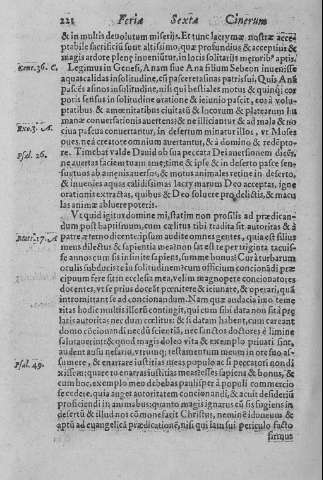 221 Feriæ Sextæ Cinerum
& in multis deuolutum miserijs. Et tunc lacrymæ nostræ accep
tabile sacrificiũ sunt altissimo, quæ profundius & acceptius &
magis ardote plenę inueniũtur, in locis solitarijs
Gene. 36. C. Legimus in Genesi, Anam siue Ana filium Sebeon inuenisse
aquas calidas in solitudine, cũ pasceret asinas patris sui. Quis Ana
pascẽs asinos in solitudine, nisi qui bestiales motus & quinq; cor
poris sensus in solitudine oratione & ieiunio pascit, eos à volu-
ptatibus & amœnitatibus ciuitatũ & locorum & platearum hu
manæ conuersationis auertens? & ne illiciantur & ad mala & no
Exo. 3. A. ciua pascua conuertantur, in desertum minatur illos, vt Moses
oues, ne à creatore omnium auertantur, & à domino & redẽpto-
Psal. 26. re. Timebat valde Dauid ob sua peccata Dei auersionem dicẽs,
ne auertas faciem tuam à me; timé & ipse & in deserto pasce sen-
suum tuos ab amœnis auersos, & motus animales retine in deserto,
& inuenies aquas calidissimas lacrymarum Deo acceptas, igne
orationis extractas, quibus & Deo solueré pro delictis, & macu
las animæ abluere poteris.
Vt quid igitur domine mi, statim non prosilis ad prædican-
dum post baptismum, cum cælitus tibi tradita sit autoritas & à
Matt. 17. A patre æterno dicente: ipsum audite omnes gentes, quia est filius
meus dilectus & sapientia mea? non satis est te per triginta tacuis-
se annos cum sis infinite sapiens, summe bonus? Cur à turbarum
oculis subducis te in solitudinem? cum officium concionãdi præ-
cipuum fere sit in ecclesia mea, velim magnopere concionatores
docentes, vt se prius doceãt pœnitere & ieiunare, & operari, quã
intromittant se ad concionandum. Nam quæ audacia imo teme
ritas hodie multis illorũ contingit, qui cum sibi data non sit præ
latis autoritas nec dum cælitus: & si datam habent, cum careant
domo cõcionandi necdũ scientiã, nec sanctos doctores è limine
salutauerint: & quod magis doleo vita & exemplo priuati sint,
audent ausu nefario, vtrunq; testamentum meum in ore suo as-
Psal. 49. sumere, & enarrare iustitias meas populo ac si peccatori nondi
xissem: quare tu enarras iustitias meas? esses sapiens & bonus, &
cum hoc, exemplo meo debebas paulisper à populi commercio
secedere, quia auget autoritatem concionandi, & acuit desideriũ
proficiendi in animabus: quanto magis ignarus cũ sis fugiens in
desertũ & illud nos cõmonefacit Christus, neminé idoneum &
aptũ ad euangelica prædicationẽ, nisi qui iam sui periculo facto
sirque